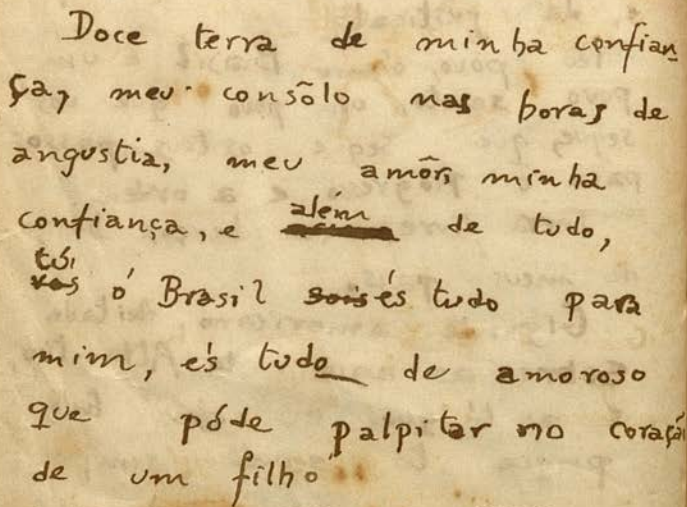 Doce terra de minha confian
ça, meu consôlo nas horas de
angustia, meu amôr, minha
confiança, e além de tudo,
tú, vos ó Brasil sois és tudo para
mim, és tudo de amoroso
que póde palpitar no coração
de um filho